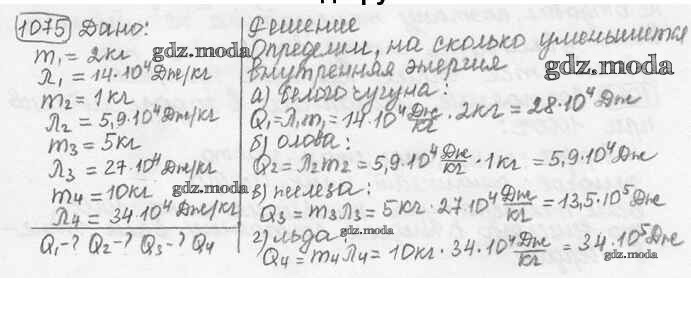 1075 Дано:
m₁ = 2кг
λ₁ = 14·10⁴ Дж/кг
m₂ = 1кг
λ₂ = 5,9·10⁴ Дж/кг
m₃ = 5кг
λ₃ = 27·10⁴ Дж/кг
m₄ = 10кг
λ₄ = 34·10⁴ Дж/кг
Q₁-? Q₂-? Q₃-? Q₄
Решение
Определим, на сколько уменьшится
внутренняя энергия
а) белого чугуна:
Q₁=λ₁m₁=14·10⁴ Дж/кг · 2кг = 28·10⁴ Дж
б) олова:
Q₂ = λ₂m₂ = 5,9·10⁴ Дж/кг · 1кг = 5,9·10⁴ Дж
в) железа:
Q₃ = m₃λ₃ = 5кг · 27·10⁴ Дж/кг = 13,5·10⁵ Дж
г) льда:
Q₄ = m₄λ₄ = 10кг · 34·10⁴ Дж/кг = 34·10⁵ Дж
gdz.moda
gdz.moda
gdz.moda
gdz.moda
gdz.moda
gdz.moda